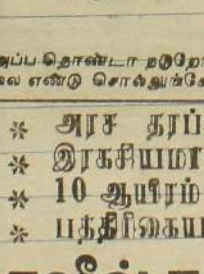 அப்ப தொண்டா
லை எண்டு சொல்லுங்கோ
* அரச தரப்
* இரகசியமா
* 10 ஆயிரம்
* பத்திரிகைய